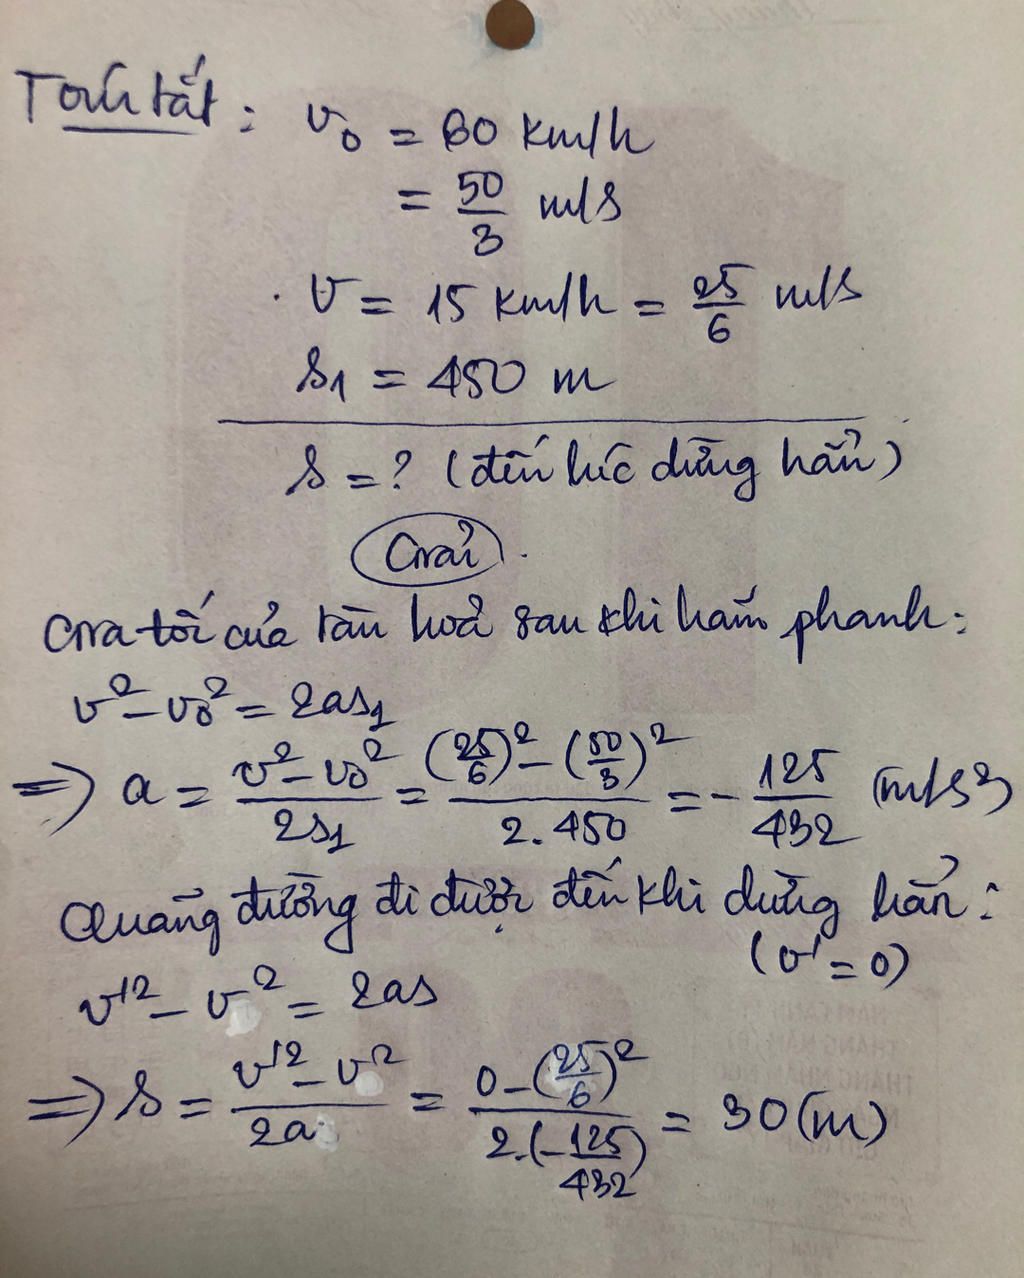 Tóm tắt: v₀ = 60 km/h
= 50/3 m/s
. v = 15 km/h = 25/6 m/s
s₁ = 450 m
s = ? (đến lúc dừng hẳn)
Giải.
Gia tốc của tàu hoả sau khi hãm phanh:
v² - v₀² = 2as₁
=> a = (v² - v₀²)/(2s₁) = ((25/6)² - (50/3)²)/(2.450) = - 125/432 (m/s²)
Quãng đường đi được đến khi dừng hẳn:
(v' = 0)
v'² - v² = 2as
=> s = (v'² - v²)/(2a) = (0 - (25/6)²)/(2.(-125/432)) = 30 (m)